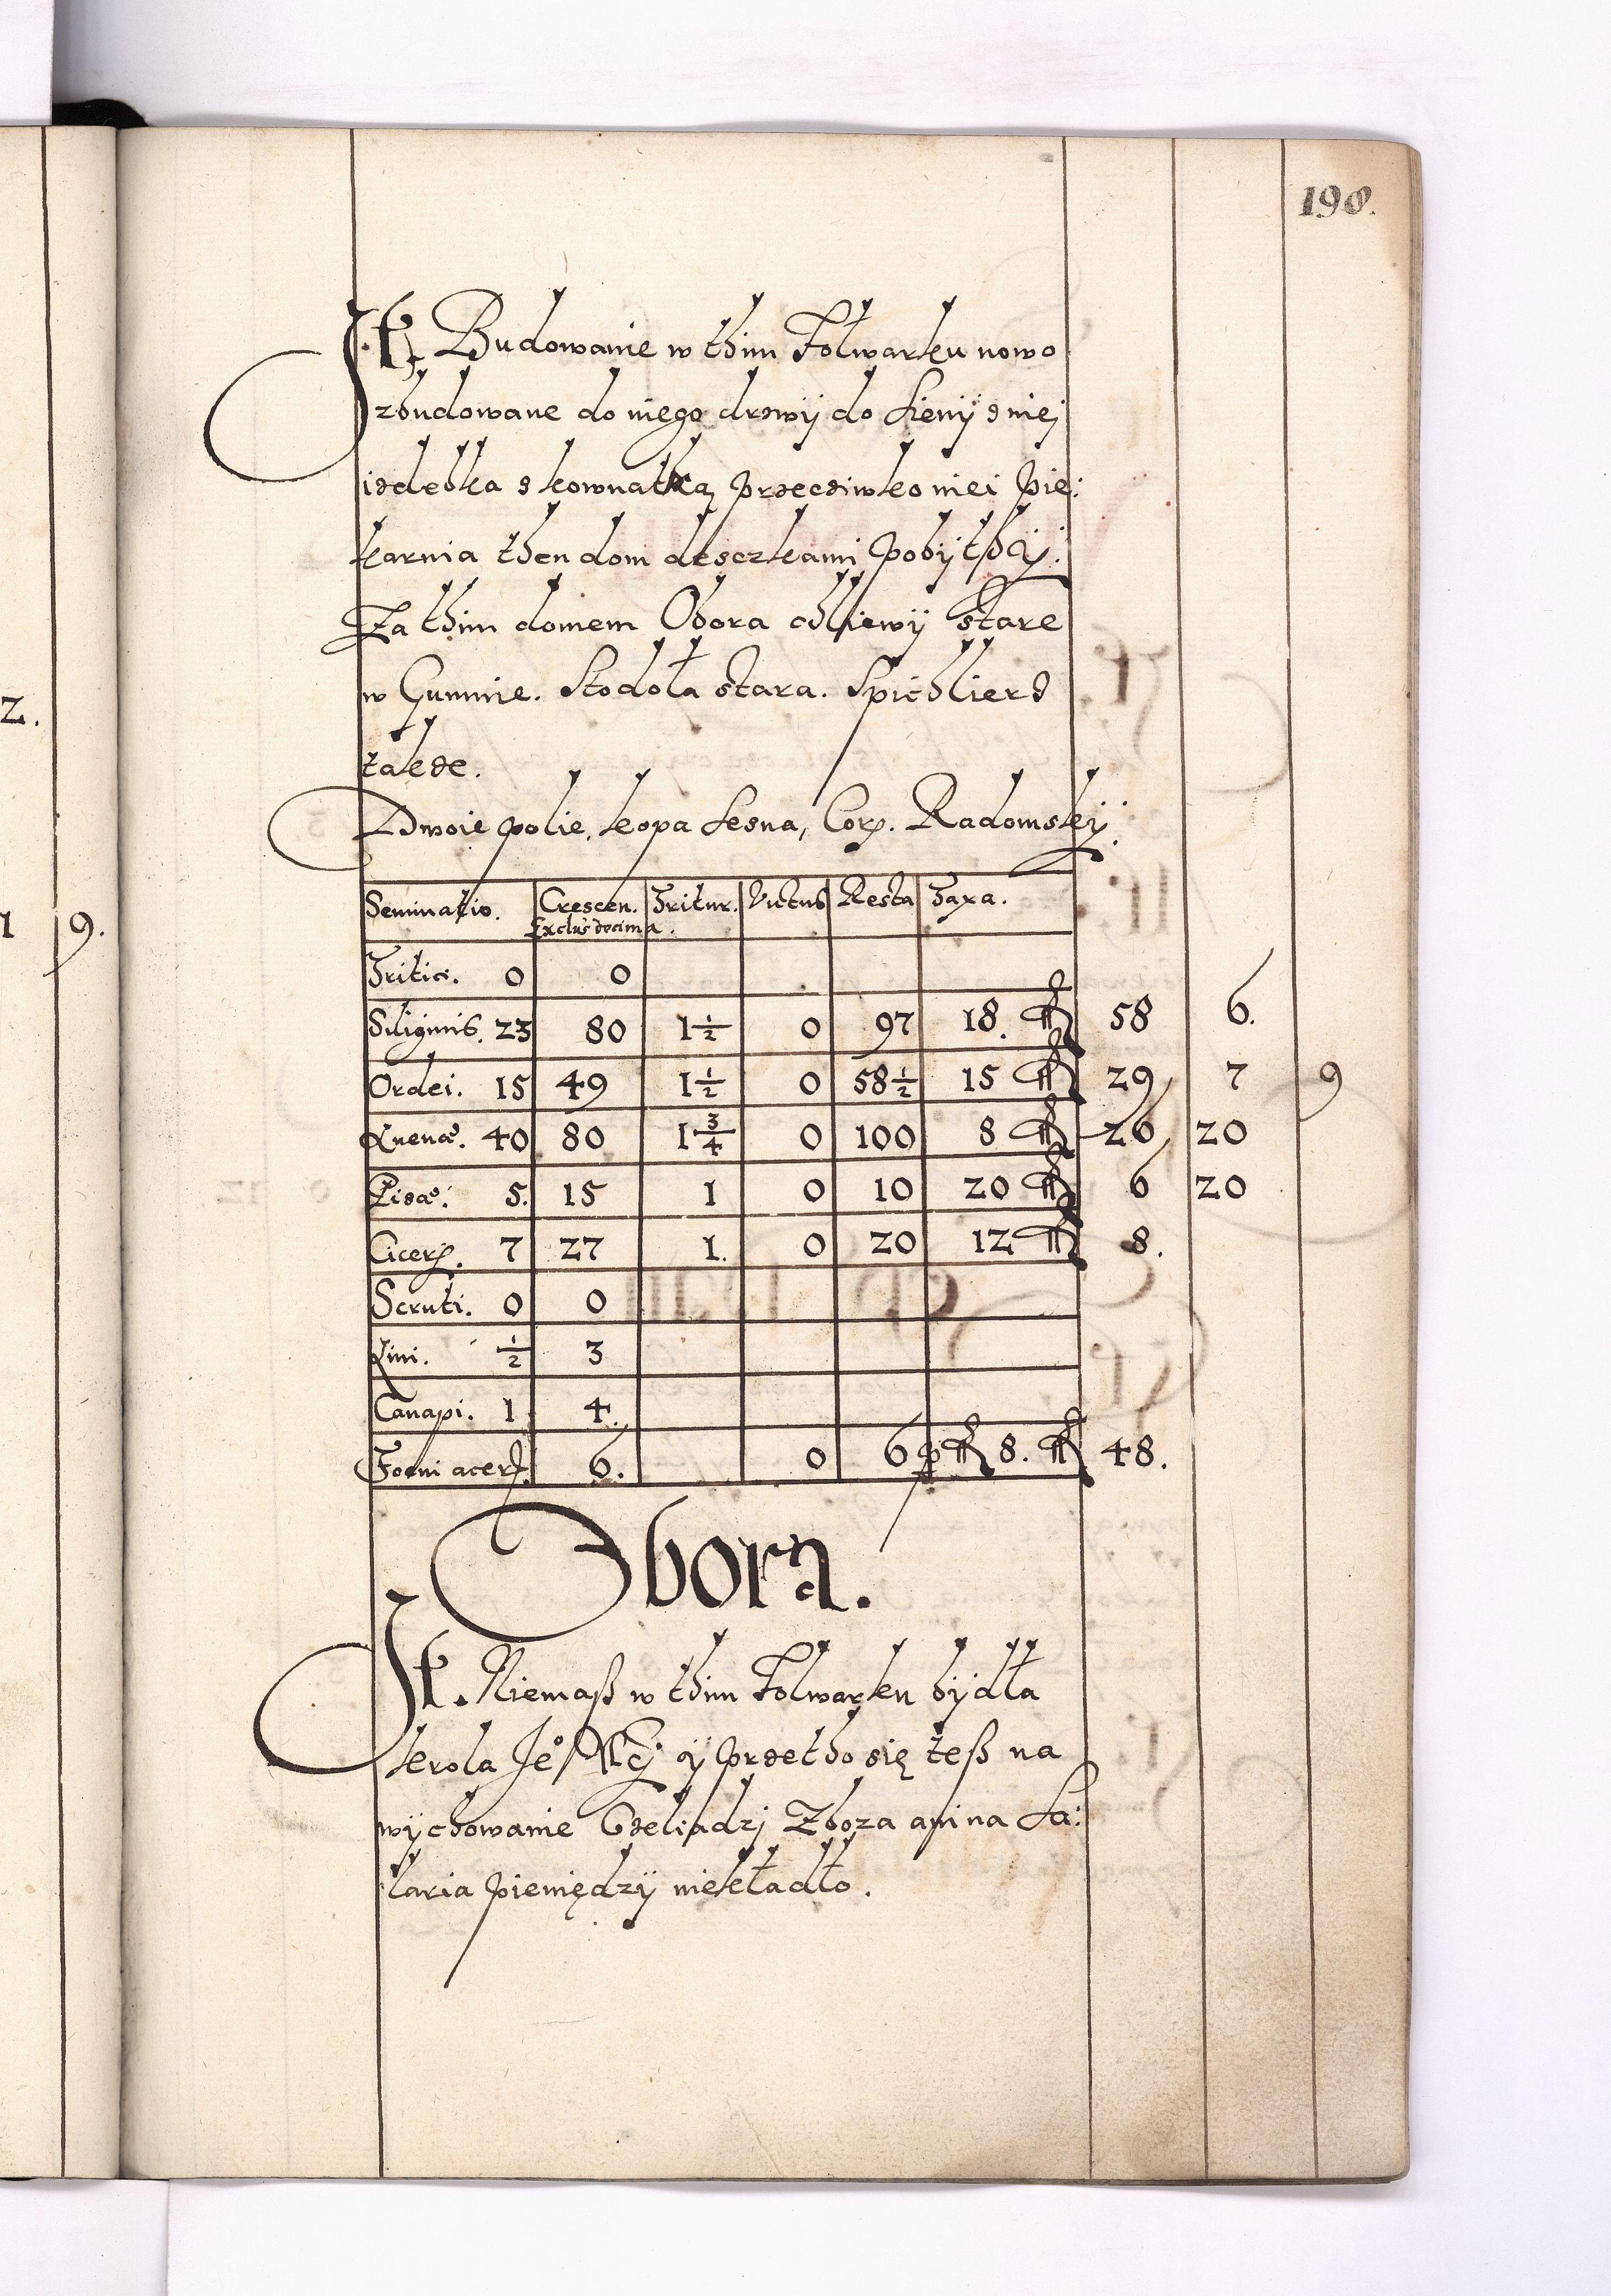 198.
It. Budowanie w thim Folwarku nowo
zbudowane do niego drzwij do Sienij z niej
izdebka z kownatką przeciwko niei pie:
karnia then dom desczkami pobijthÿ.
Za thim domem Obora chliewij stare
w Gumnie. Stodoła stara. Spichlierz
takze.
Dwoie polie, kopa Lesna, Cor. Radomskÿ.
Seminatio. Crescen. Exclus decima. Tritur. Victus Resta Taxa.
Tritici. 0 0
Siliginis. 23 80 1½ 0 97 18. gr 58 6.
Ordei. 15 49 1½ 0 58½ 15 gr 29 7 9
Auenæ. 40 80 1¾ 0 100 8 gr 26 20
Pisæ. 5. 15 1 0 10 20 gr 6 20
Cicer. 7 27 1. 0 20 12 gr 8.
Scruti. 0 0
Lini. ½ 3
Canapi. 1 4.
Foeni acer. 6. 0 6 p gr 8. gr 48.
Obora.
It. Niemaß w thim Folwarku bijdła
krola Je° Mcj ÿ przetho się teß na
wijchowanie Czeliadzj Zboza ani na Sa:
laria pieniędzij niekładło.
z.
1 9.